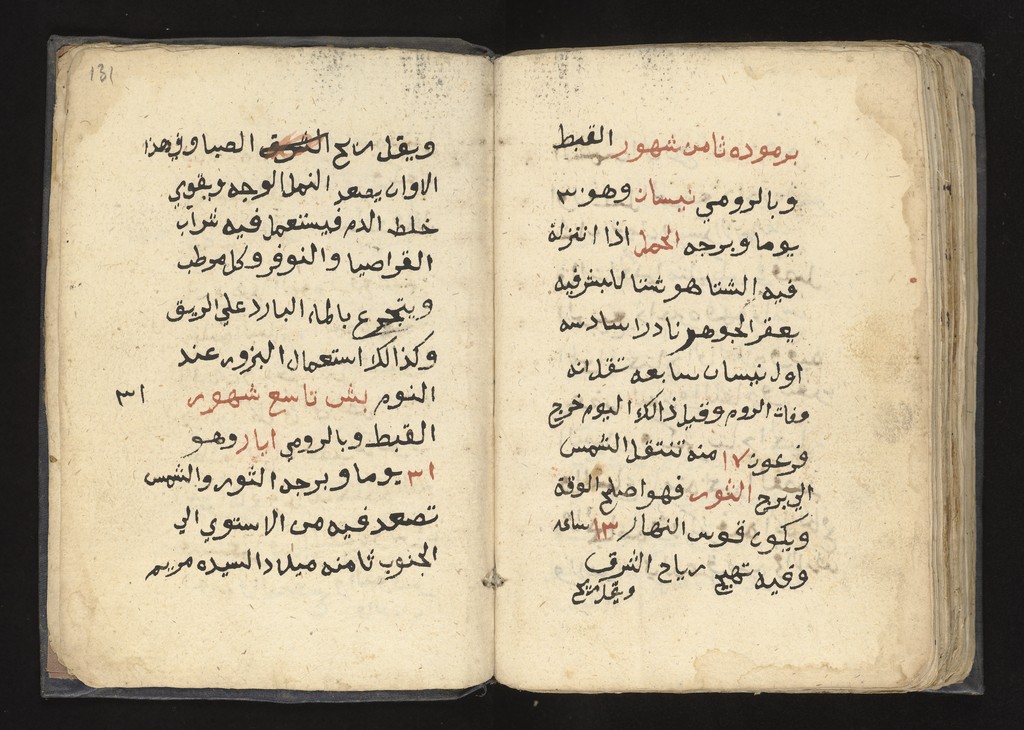 برموده ثامن شهور القبط
وبالرومي نيسان وهو ٣٠
يوما وبرجه الحمل اذا انتزلة
فيه الشتا هو شتا للبشر فيه
يعقر الجوهر نادرا سادسه
اول نيسان سابعه تقل انه
وفات الروم وقيل ذالك اليوم خرج
فرعون ١٧ منه تنتقل الشمس
الي برج الثور فهو اصلح الوقة
ويكون قوس النهار ١٣ ساعه
وفيه تهيج رياح الشرق
ويقل ريح
131
ويقل ريح الشوق الصبا وفي هذا
الاوان يصعد النمل الوجه ويقوي
خلط الدم فيستعمل فيه شراب
القراصيا والنوفر وكل مرطب
ويتجرع بالماء البارد علي الريق
وكذالك استعمال البزور عند
النوم بشن تاسع شهور ٣١
القبط وبالرومي ايار وهو
٣١ يوما وبرجه الثور والشمس
تصعد فيه من الاستوي الي
الجنوب ثامنه ميلاد السيده مريم